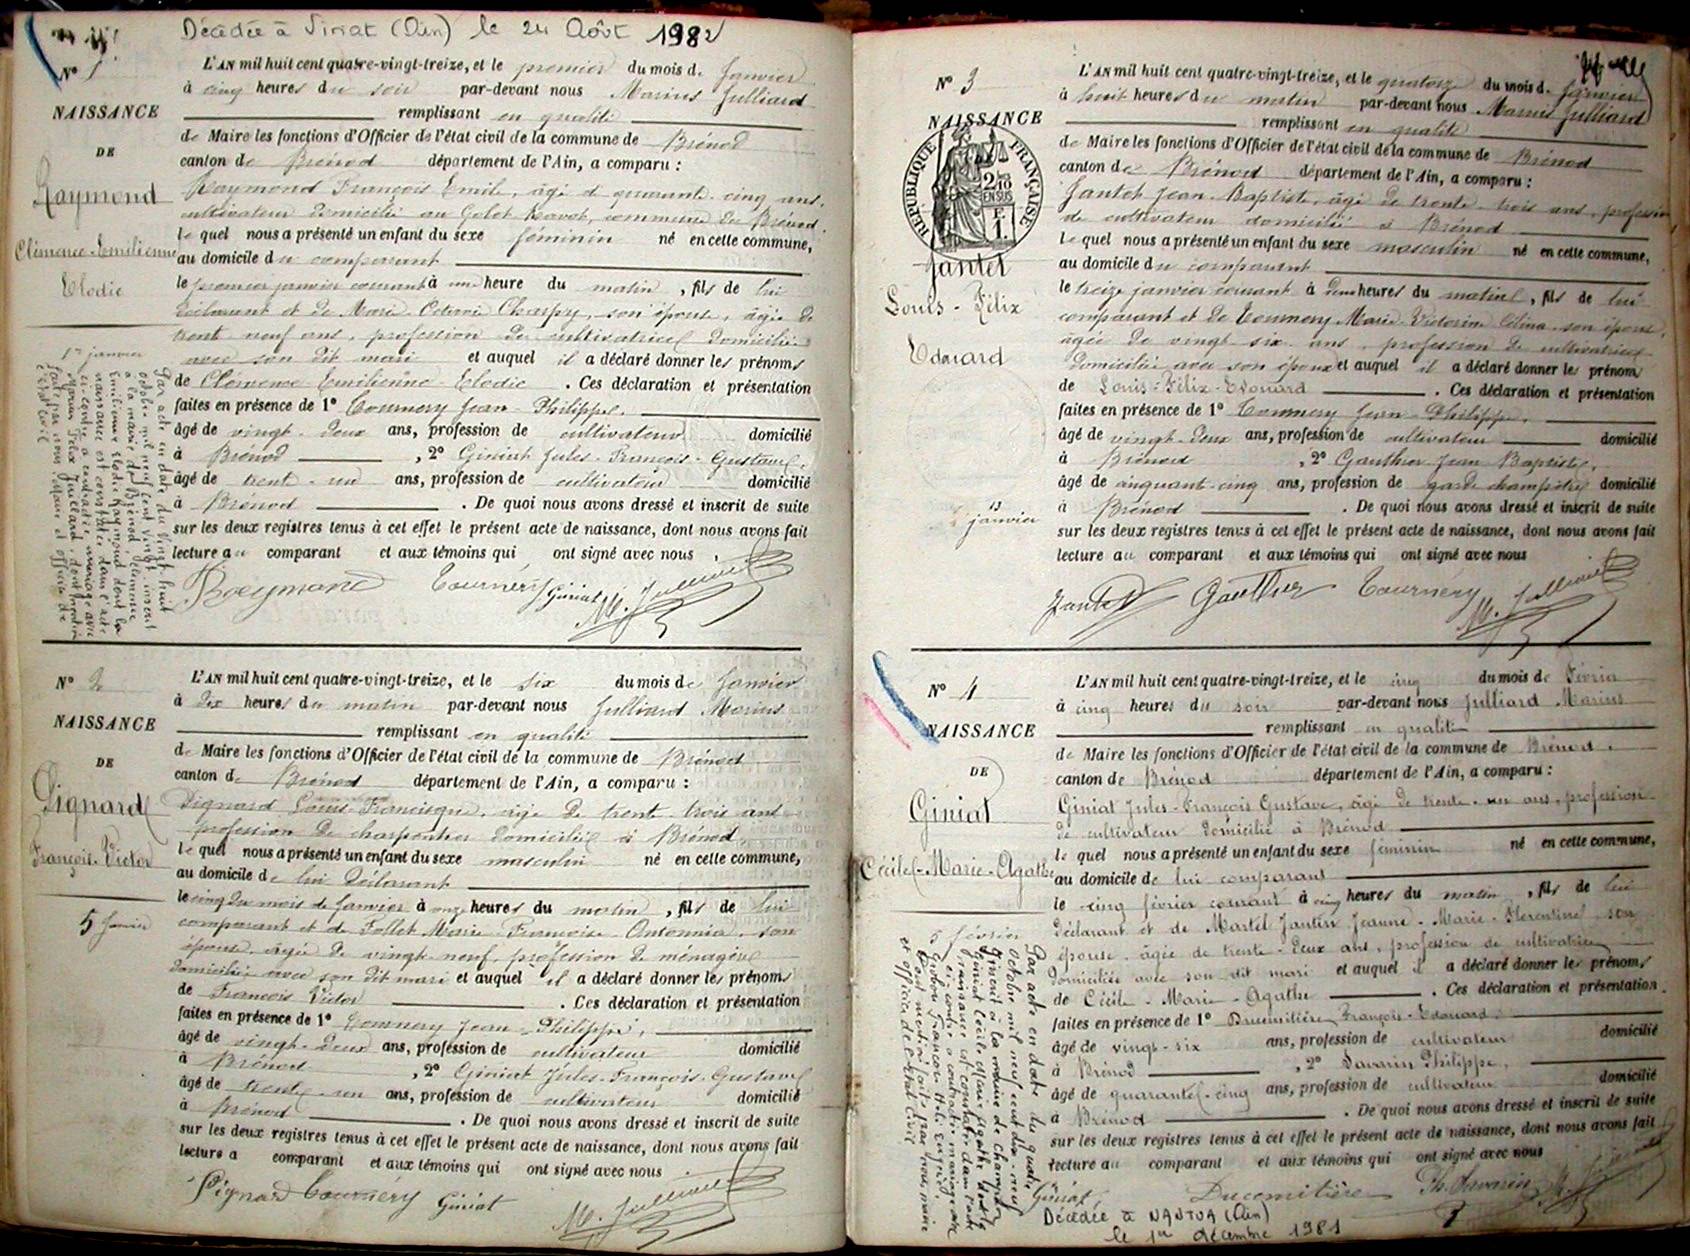 Décédée à Viriat (Ain) le 24 Août 1982
N° 1
NAISSANCE
DE
Raymond
Clémence-Emilienne
Elodie
L'AN mil huit cent quatre-vingt-treize, et le premier du mois d. Janvier
à cinq heures du soir par-devant nous Marius Julliard
remplissant en qualité
de Maire les fonctions d'Officier de l'état civil de la commune de Brénod
canton de Brénod département de l'Ain, a comparu :
Raymond François Emile, âgé d quarante-cinq ans,
cultivateur domicilié au commune de Brénod,
le quel nous a présenté un enfant du sexe féminin né en cette commune,
au domicile du comparant
le premier janvier courant à une heure du matin, fils de lui
déclarant et de Marie Octavie Charpy, son épouse, âgée de
trent neuf ans, profession de cultivatrice domiciliée
avec son dit mari et auquel il a déclaré donner les prénoms
de Clémence Emilienne Elodie. Ces déclaration et présentation
faites en présence de 1° Tournery Jean-Philippe,
âgé de vingt-deux ans, profession de cultivateur domicilié
à Brénod, 2° Giniat Jules-François-Gustave,
âgé de trent-un ans, profession de cultivateur domicilié
à Brénod. De quoi nous avons dressé et inscrit de suite
sur les deux registres tenus à cet effet le présent acte de naissance, dont nous avons fait
lecture au comparant et aux témoins qui ont signé avec nous.
Raymond Tournéry Giniat M. Julliard
1er janvier
Par acte en date du vingt huit
octobre mil neuf cent vingt, inscrit
à la mairie de Brénod, Clémence
Emilienne Elodie Raymond dont la
naissance est constatée dans l'acte
ci-contre a contracté mariage avec
Félix Juillard, dont mention
faite par nous Maire et officier de
l'état civil
N° 2
NAISSANCE
DE
Pignard
François-Victor
5 Janvier
L'AN mil huit cent quatre-vingt-treize, et le six du mois de Janvier
à dix heures du matin par-devant nous Julliard Marius
remplissant en qualité
de Maire les fonctions d'Officier de l'état civil de la commune de Brénod
canton de Brénod département de l'Ain, a comparu :
Pignard Louis-Francisque, âgé de trent-trois ans
profession de charpentier domicilié à Brénod
le quel nous a présenté un enfant du sexe masculin né en cette commune,
au domicile de lui déclarant
le cinq du mois de Janvier à onze heures du matin, fils de lui
comparant et de Follet Marie-Françoise-Antonnia, son
épouse, âgée de vingt-neuf, profession de ménagère
domiciliée avec son dit mari et auquel il a déclaré donner les prénoms
de François Victor. Ces déclaration et présentation
faites en présence de 1° Tournery Jean-Philippe,
âgé de vingt-deux ans, profession de cultivateur domicilié
à Brénod, 2° Giniat Jules-François-Gustave
âgé de trente-un ans, profession de cultivateur domicilié
à Brénod. De quoi nous avons dressé et inscrit de suite
sur les deux registres tenus à cet effet le présent acte de naissance, dont nous avons fait
lecture a comparant et aux témoins qui ont signé avec nous
Pignard Tournéry Giniat M. Julliard
N° 3
NAISSANCE
RÉPUBLIQUE FRANÇAISE
2/10 EN SUS
Jantet
Louis-Félix
Edouard
13
janvier
L'AN mil huit cent quatre-vingt-treize, et le quatorze du mois d. Janvier
à huit heures du matin par-devant nous Marius Julliard
remplissant en qualité
de Maire les fonctions d'Officier de l'état civil de la commune de Brénod
canton de Brénod département de l'Ain, a comparu :
Jantet Jean-Baptiste, âgé de trente-trois ans, profession
de cultivateur domicilié à Brénod
le quel nous a présenté un enfant du sexe masculin né en cette commune,
au domicile du comparant
le treize janvier courant à deux heures du matin, fils de lui
comparant et de Tournery Marie Victorine Célina son épouse,
âgée de vingt-six ans, profession de cultivatrice
domiciliée avec son époux et auquel il a déclaré donner les prénoms
de Louis-Félix-Edouard. Ces déclaration et présentation
faites en présence de 1° Tournery Jean-Philippe,
âgé de vingt-deux ans, profession de cultivateur domicilié
à Brénod, 2° Gauthier Jean Baptiste,
âgé de cinquant-cinq ans, profession de garde champêtre domicilié
à Brénod. De quoi nous avons dressé et inscrit de suite
sur les deux registres tenus à cet effet le présent acte de naissance, dont nous avons fait
lecture au comparant et aux témoins qui ont signé avec nous
Jantet Gauthier Tournéry M. Julliard
N° 4
NAISSANCE
DE
Giniat
Cécile-Marie-Agathe
5 février
L'AN mil huit cent quatre-vingt-treize, et le cinq du mois de Février
à cinq heures du soir par-devant nous Julliard Marius
remplissant en qualité
de Maire les fonctions d'Officier de l'état civil de la commune de Brénod.
canton de Brénod département de l'Ain, a comparu :
Giniat Jules-François Gustave, âgé de trente-un ans, profession
de cultivateur domicilié à Brénod
le quel nous a présenté un enfant du sexe féminin né en cette commune,
au domicile de lui comparant
le cinq février courant à cinq heures du matin, fils de lui
déclarant et de Martel Jantin Jeanne-Marie-Florentine, son
épouse, âgée de trente-deux ans, profession de cultivatrice
domiciliée avec son dit mari et auquel il a déclaré donner les prénoms
de Cécile-Marie-Agathe. Ces déclaration et présentation
faites en présence de 1° Ducomitière François-Edouard.
âgé de vingt-six ans, profession de cultivateur domicilié
à Brénod, 2° Savarin Philippe,
âgé de quarante-cinq ans, profession de cultivateur domicilié
à Brénod. De quoi nous avons dressé et inscrit de suite
sur les deux registres tenus à cet effet le présent acte de naissance, dont nous avons fait
lecture au comparant et aux témoins qui ont signé avec nous
Giniat Ducomitière Ph. Savarin
Par acte en date du quatre
octobre mil neuf cent dix-neuf
inscrit à la mairie de
Giniat Cécile Marie Agathe dont la
naissance est constatée dans l'acte
ci-contre a contracté mariage avec
François
Dont mention faite par nous maire
et officier de l'état civil
Décédée à NANTUA (Ain)
le 1er décembre 1981